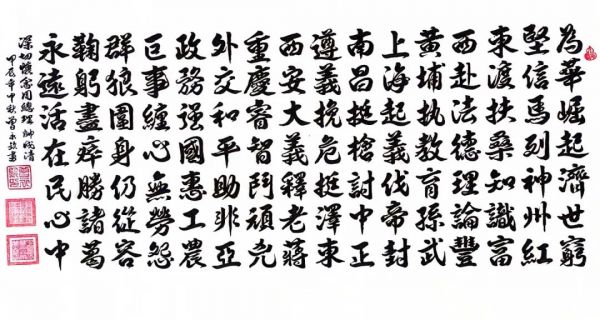 為華崛起濟世窮
堅信馬列神州紅
東渡扶桑知識富
西赴法德理論豐
黃埔执教育孫武
上海起義伐帝封
南昌挺槍討中正
遵義挽危挺澤東
西安大義釋老蔣
重慶睿智鬥頑兇
外交和平助非亞
政務强國惠工農
巨事纏心無勞怨
群狼圍身仍從容
鞠躬盡瘁勝諸葛
永遠活在民心中
深切懷念周總理
甲辰年中秋